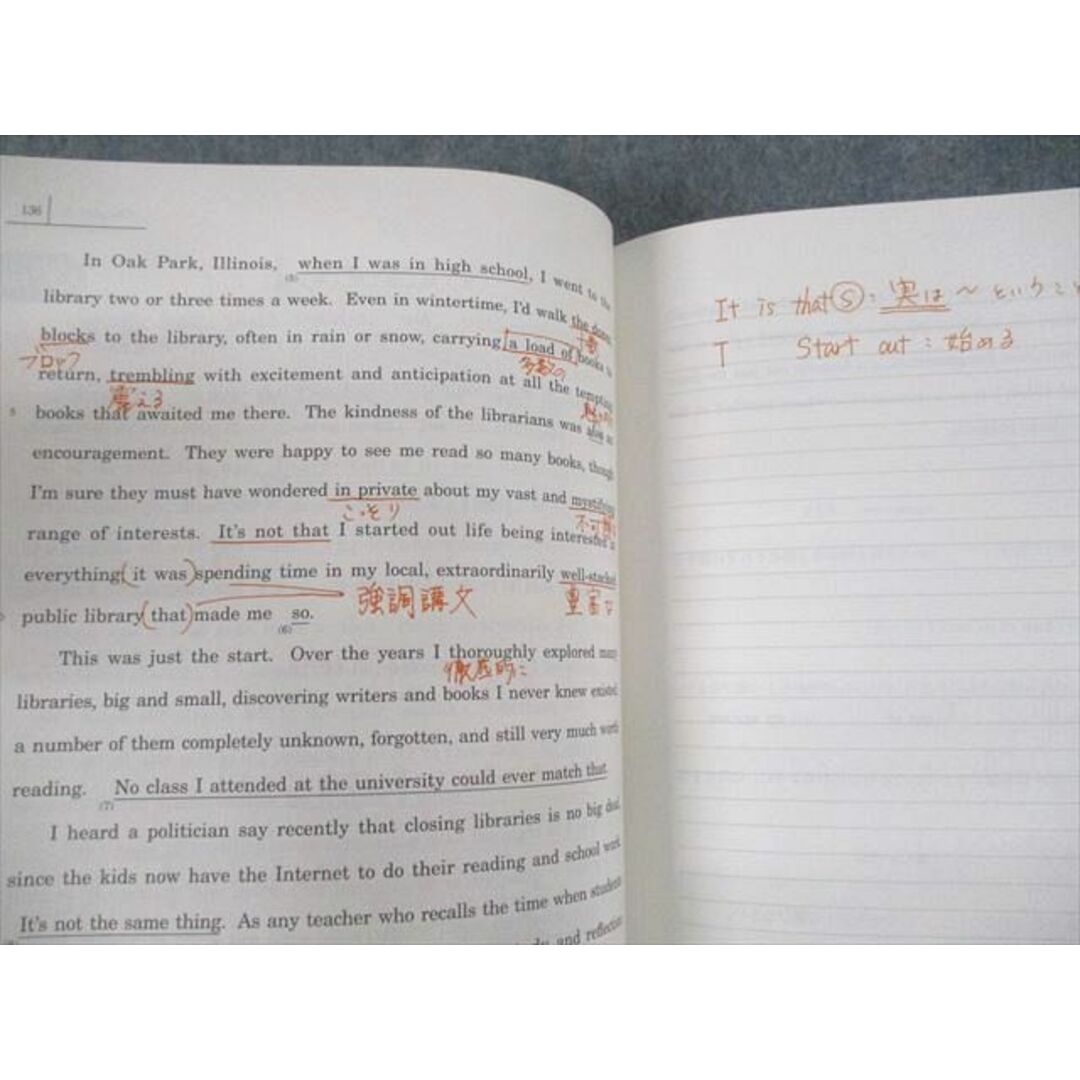 136
In Oak Park, Illinois, when I was in high school, I went to the
(5)
library two or three times a week. Even in wintertime, I'd walk the dozen
十数
blocks to the library, often in rain or snow, carrying a load of books to
ブロック
多数の
return, trembling with excitement and anticipation at all the tempting
震える
5 books that awaited me there. The kindness of the librarians was also an
encouragement. They were happy to see me read so many books, though
I'm sure they must have wondered in private about my vast and mystifying
こっそり
range of interests. It's not that I started out life being interested in
everything (it was) spending time in my local, extraordinarily well-stocked
強調講文
豊富な
public library (that) made me so.
(6)
This was just the start. Over the years I thoroughly explored many
徹底的に
libraries, big and small, discovering writers and books I never knew existed
a number of them completely unknown, forgotten, and still very much worth
reading. No class I attended at the university could ever match that
(7)
I heard a politician say recently that closing libraries is no big deal
since the kids now have the Internet to do their reading and school work
It's not the same thing. As any teacher who recalls the time when students
and reflection
It is that Ⓢ : 実は ～ ということ
T Start out : 始める